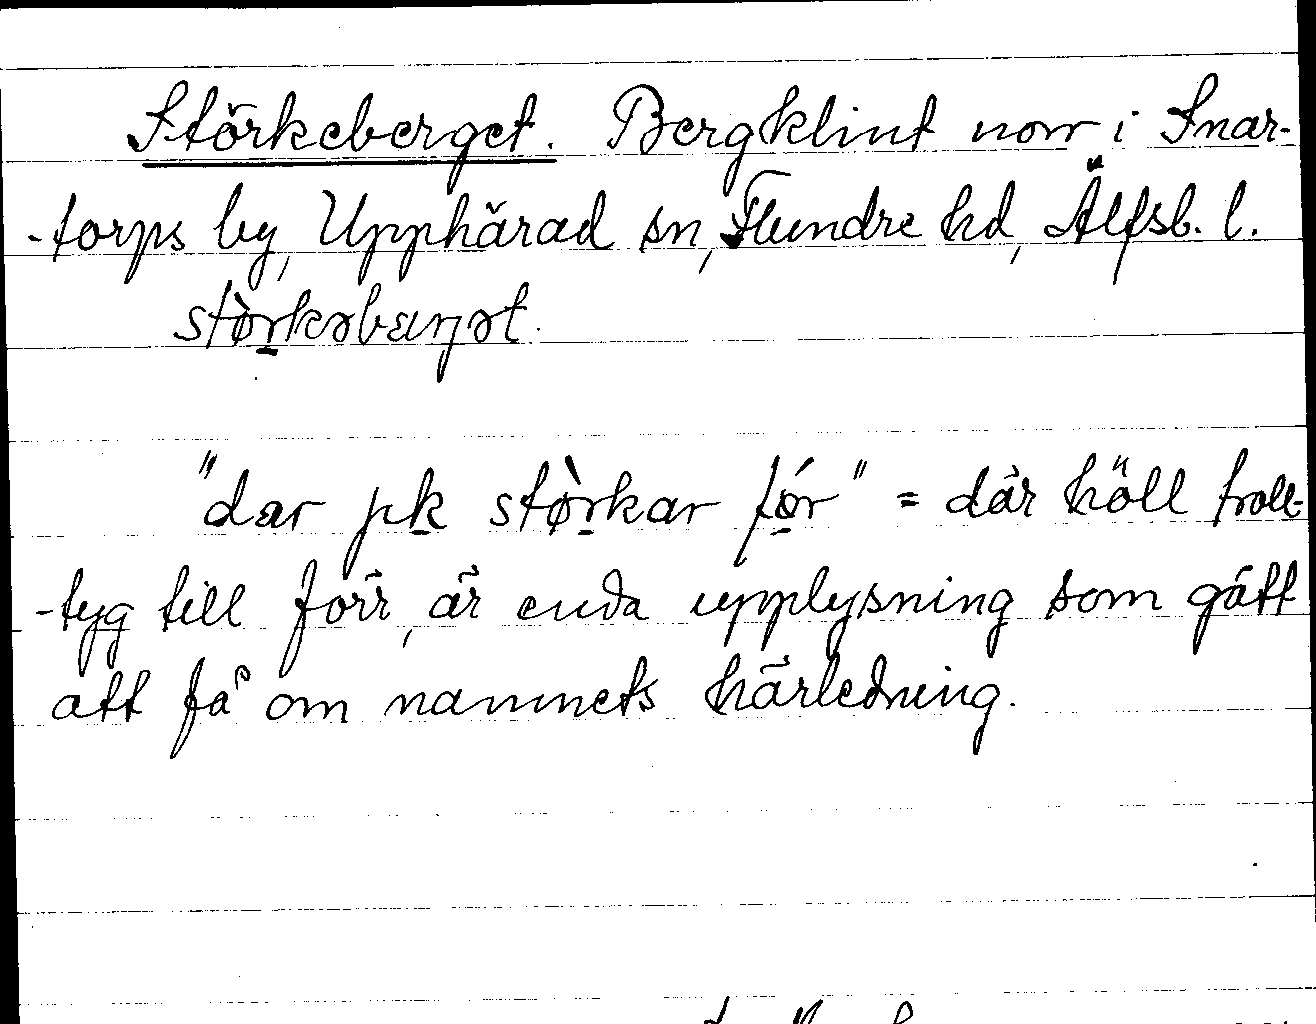 Störkeberget. Bergklint norr i Snar-
-torps by, Upphärad sn, Flundre hd, Älfsb. l.
stø̀rkəbærjət.
"dær jik stø̀rkar fǿr" = där höll troll-
-tyg till förr, är enda upplysning som gått
att få om namnets härledning.